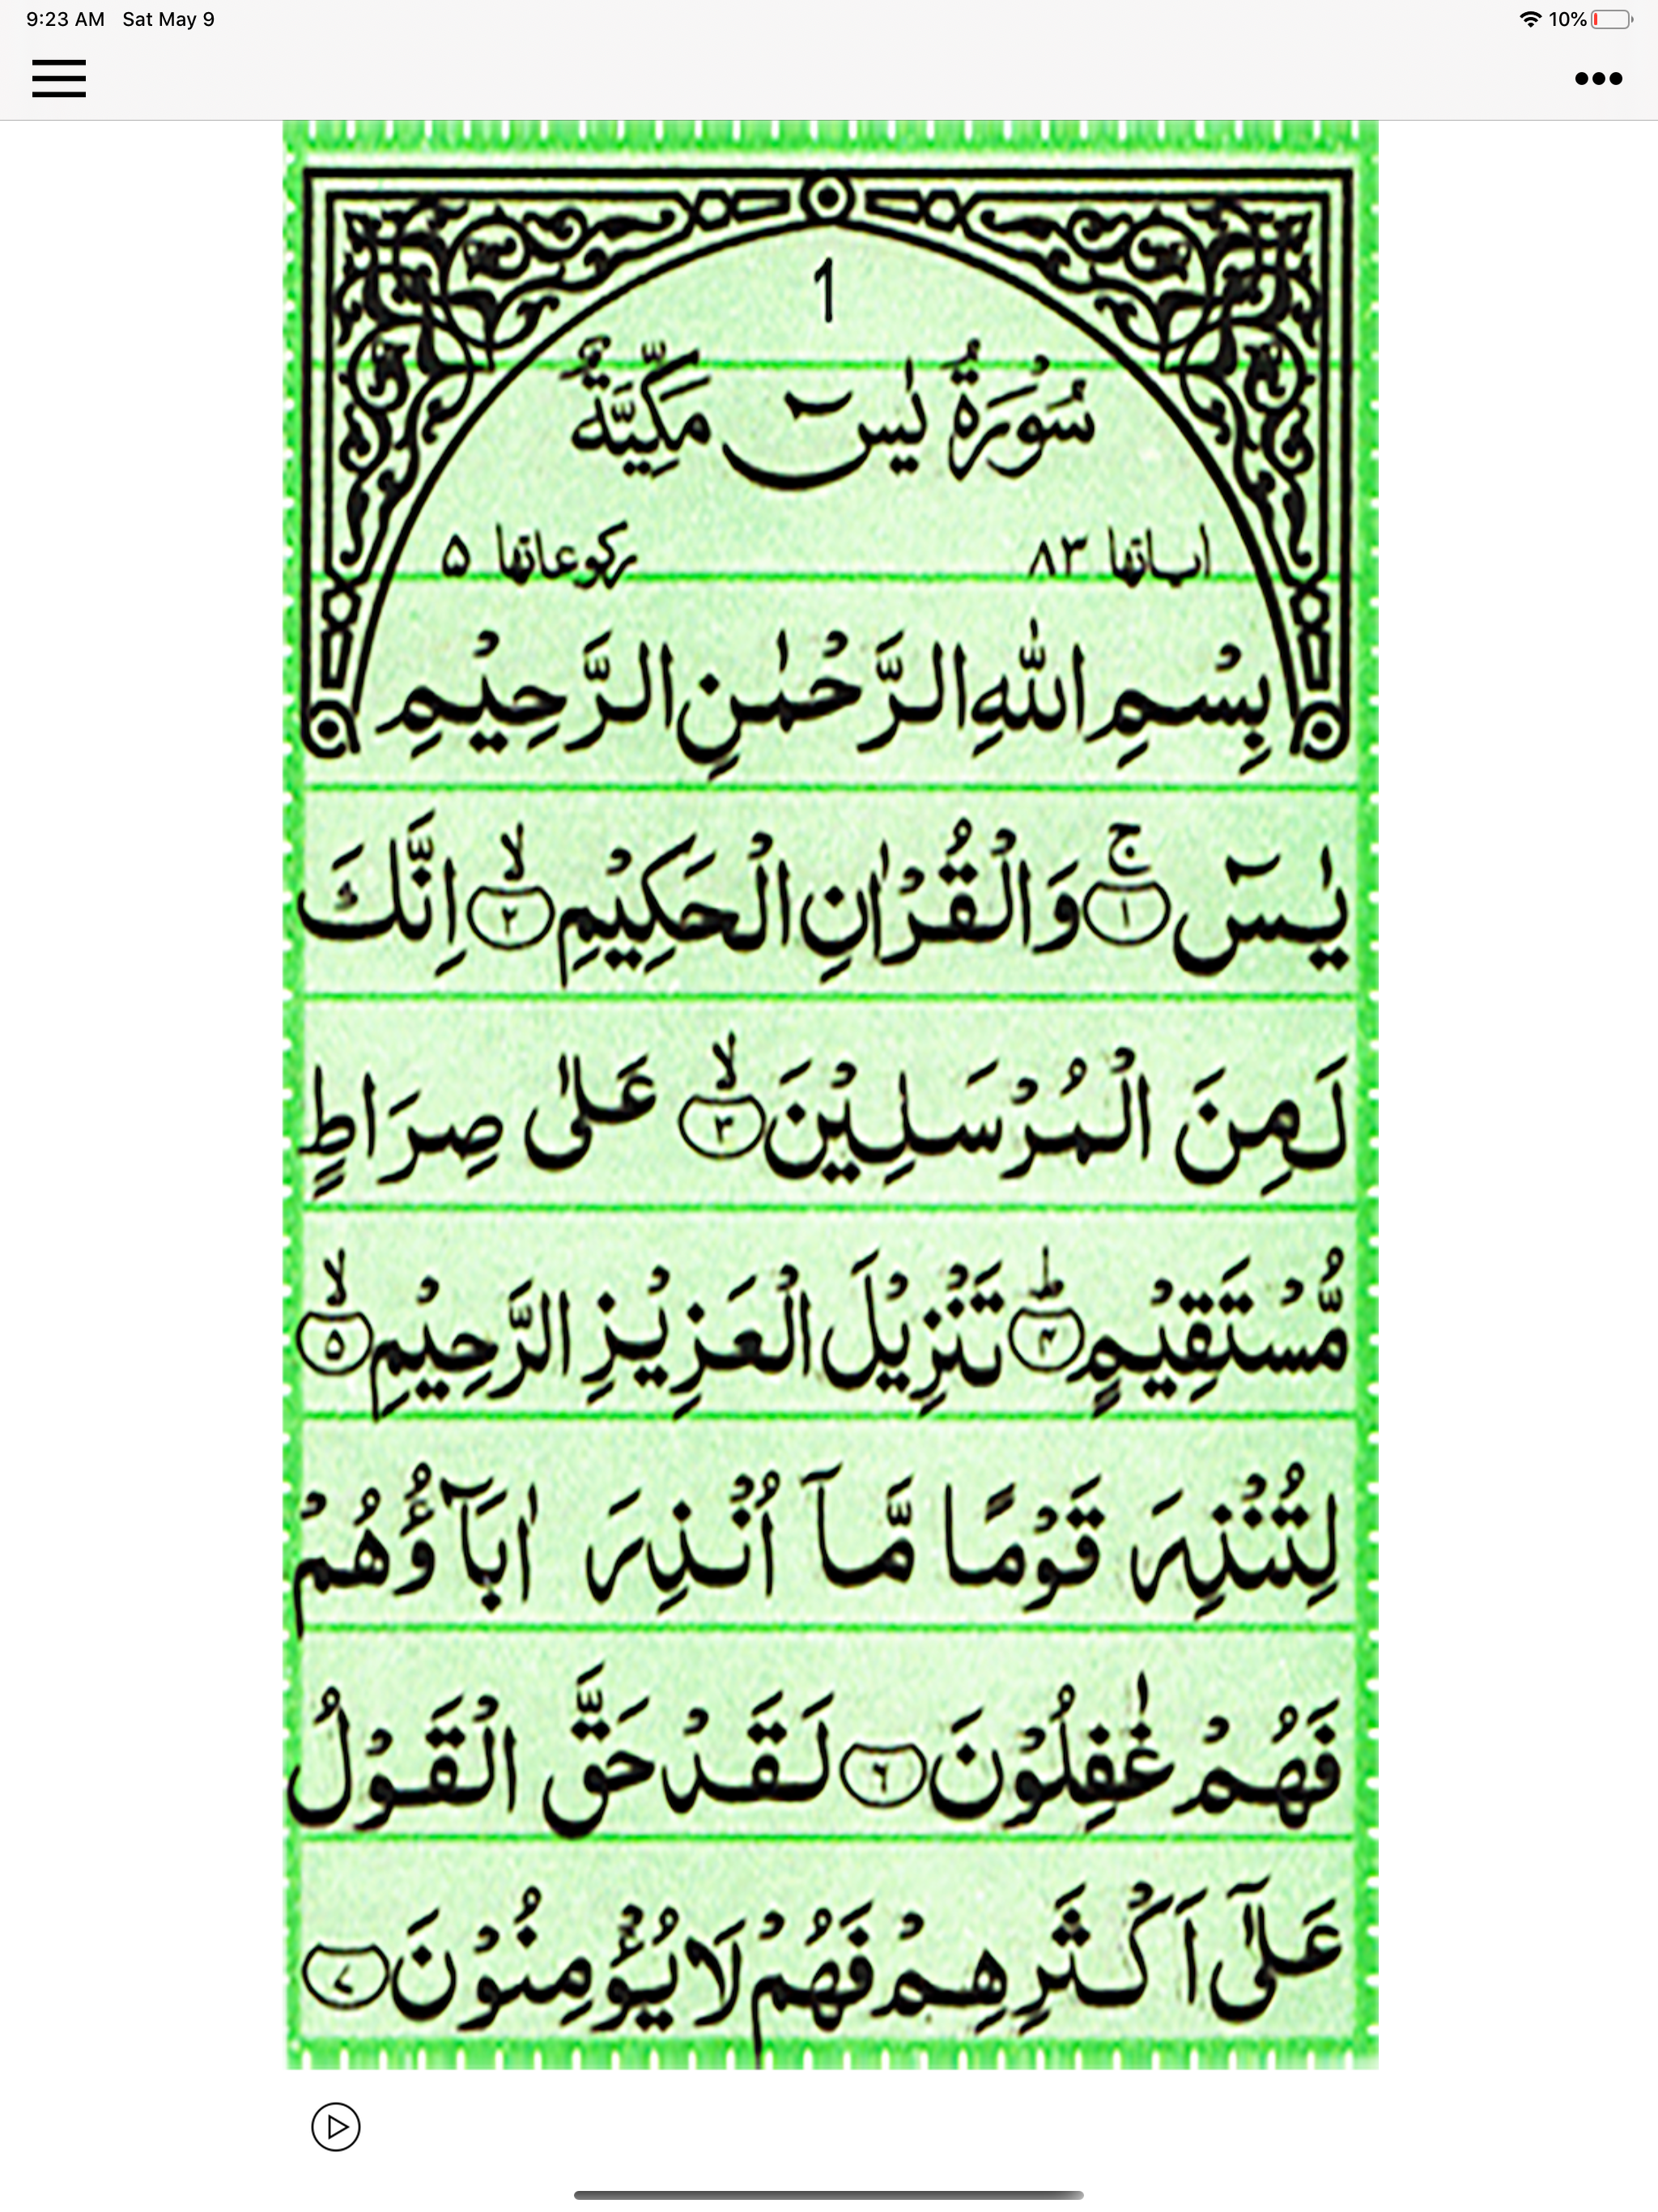 9:23 AM Sat May 9 10%
1
سُوْرَةُ يٰسٓ مَكِّيَّةٌ
اٰياتها ٨٣ ركوعاتها ۵
بِسْمِ اللّٰهِ الرَّحْمٰنِ الرَّحِيْمِ
يٰسٓ ۚ﴿١﴾ وَالْقُرْاٰنِ الْحَكِيْمِ ۙ﴿٢﴾ اِنَّكَ
لَمِنَ الْمُرْسَلِيْنَ ۙ﴿٣﴾ عَلٰى صِرَاطٍ
مُّسْتَقِيْمٍ ؕ﴿۴﴾ تَنْزِيْلَ الْعَزِيْزِ الرَّحِيْمِ ۙ﴿۵﴾
لِتُنْذِرَ قَوْمًا مَّاۤ اُنْذِرَ اٰبَآؤُهُمْ
فَهُمْ غٰفِلُوْنَ ﴿٦﴾ لَقَدْ حَقَّ الْقَوْلُ
عَلٰٓى اَكْثَرِهِمْ فَهُمْ لَا يُؤْمِنُوْنَ ﴿٧﴾